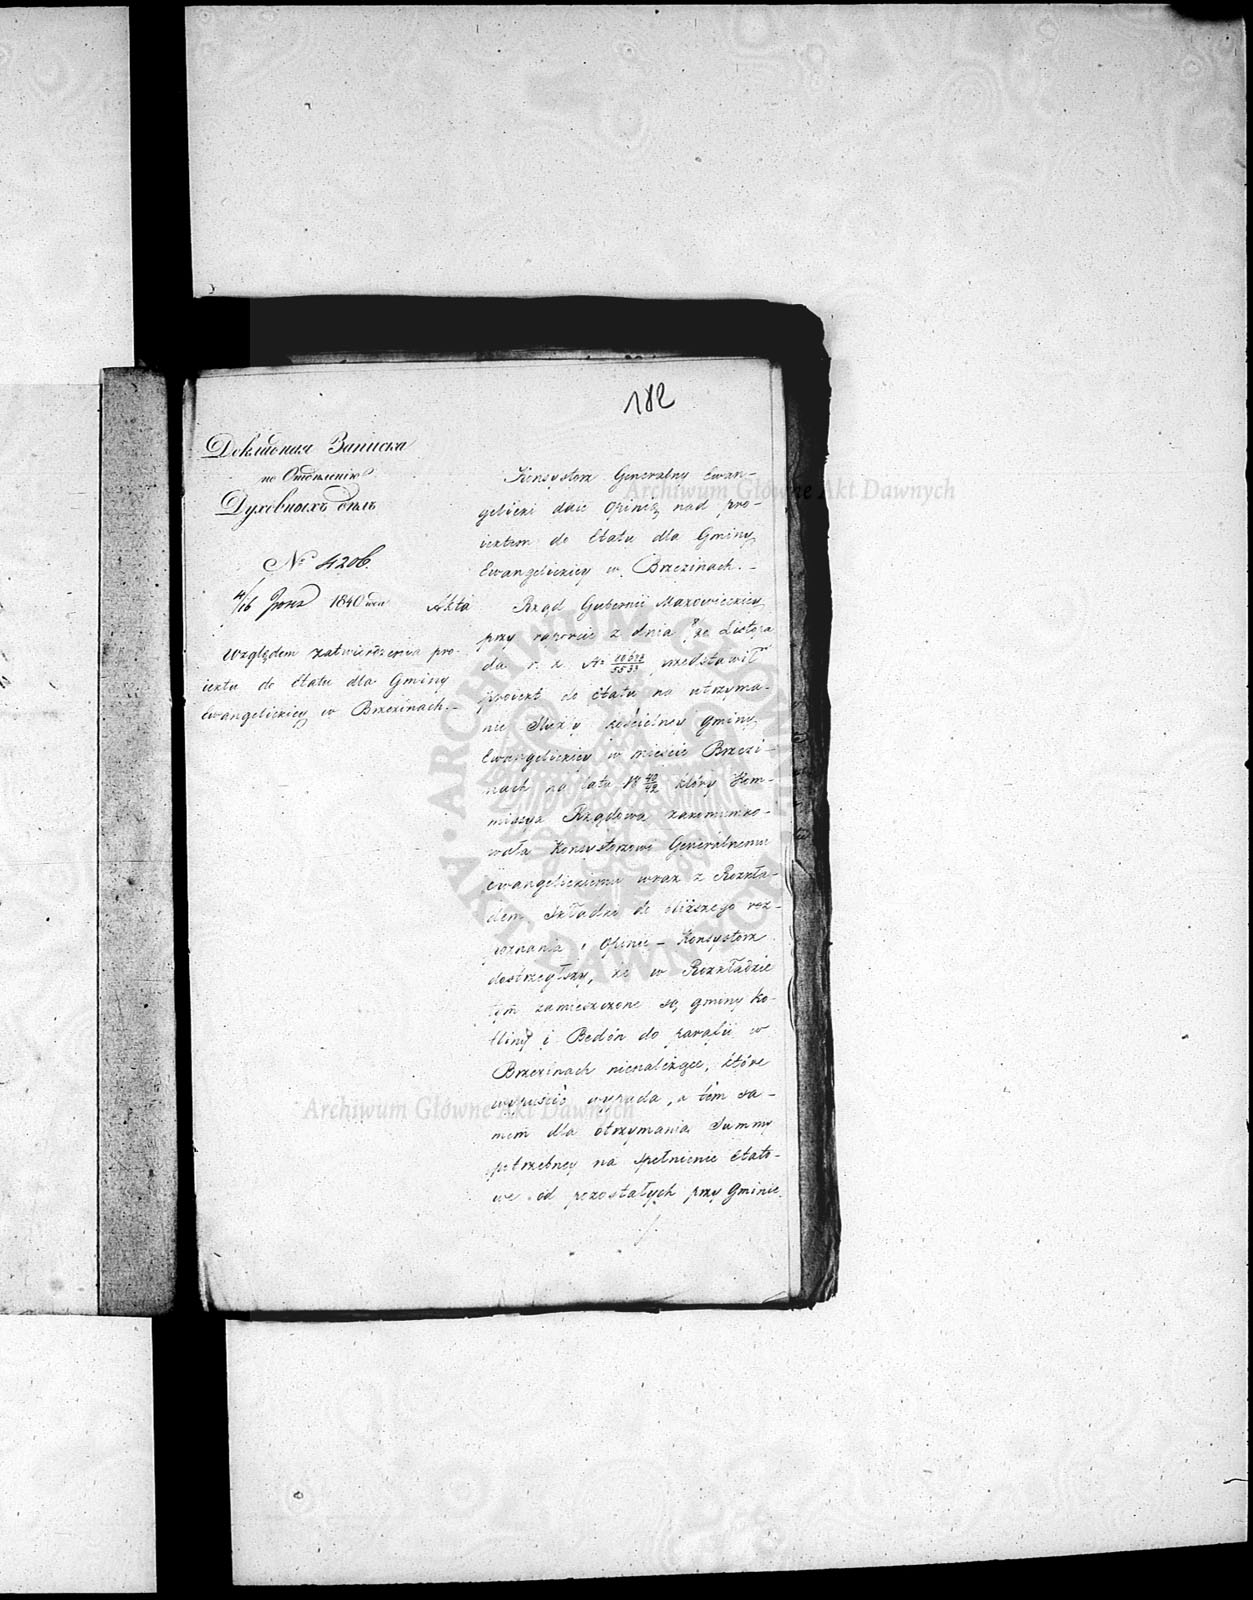 182
Докладная Записка
по Отделенію
Духовныхъ дѣлъ
№ 4206.
4/16 1840 года
Akta
Względem zatwierdzenia pro-
iektu do Etatu dla Gminy
Ewangelickiey w Brzezinach.-
Konsystorz Generalny Ewan-
gelicki daie Opinię nad pro-
iektem do Etatu dla Gminy
Ewangelickiey w Brzezinach.-
Rząd Gubernii Mazowieckiey
przy raporcie z dnia Listopa
da r. z. № przedstawił
proiekt do Etatu na utrzyma-
nie Służy kościelney gminy
Ewangelickiey w mieście Brzezi-
nach na lata 18 40/42 który Kom-
missya Rządowa zakommuniko-
wała Konsystorzowi Generalnemu
Ewangelickiemu wraz z Rozkła-
dem Składki do bliższego roz-
poznania i Opinii - Konsystorz
dostrzegłszy, że w Rozkładzie
tym zamieszczone są gminy Ko-
liny i Bedoń do parafii w
Brzezinach nienależące, które
wypuścić wypada, a tém sa-
mem dla otrzymania Summy
potrzebney na spełnienie Etato-
we od pozostałych przy Gminie
./.
Archiwum Główne Akt Dawnych
Archiwum Główne Akt Dawnych
ARCHIWUM GŁÓWNE AKT DAWNYCH